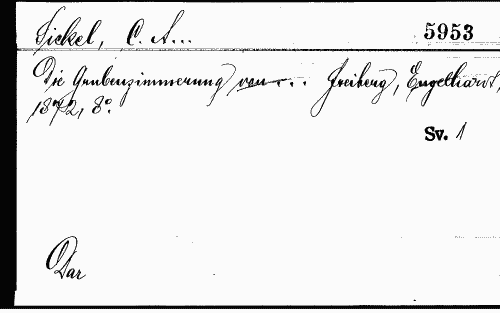 Sickel, C. A...
5953
Die Grubenzimmerung von... Freiberg, Engelhardt,
1872, 8°.
Sv. 1
Dar